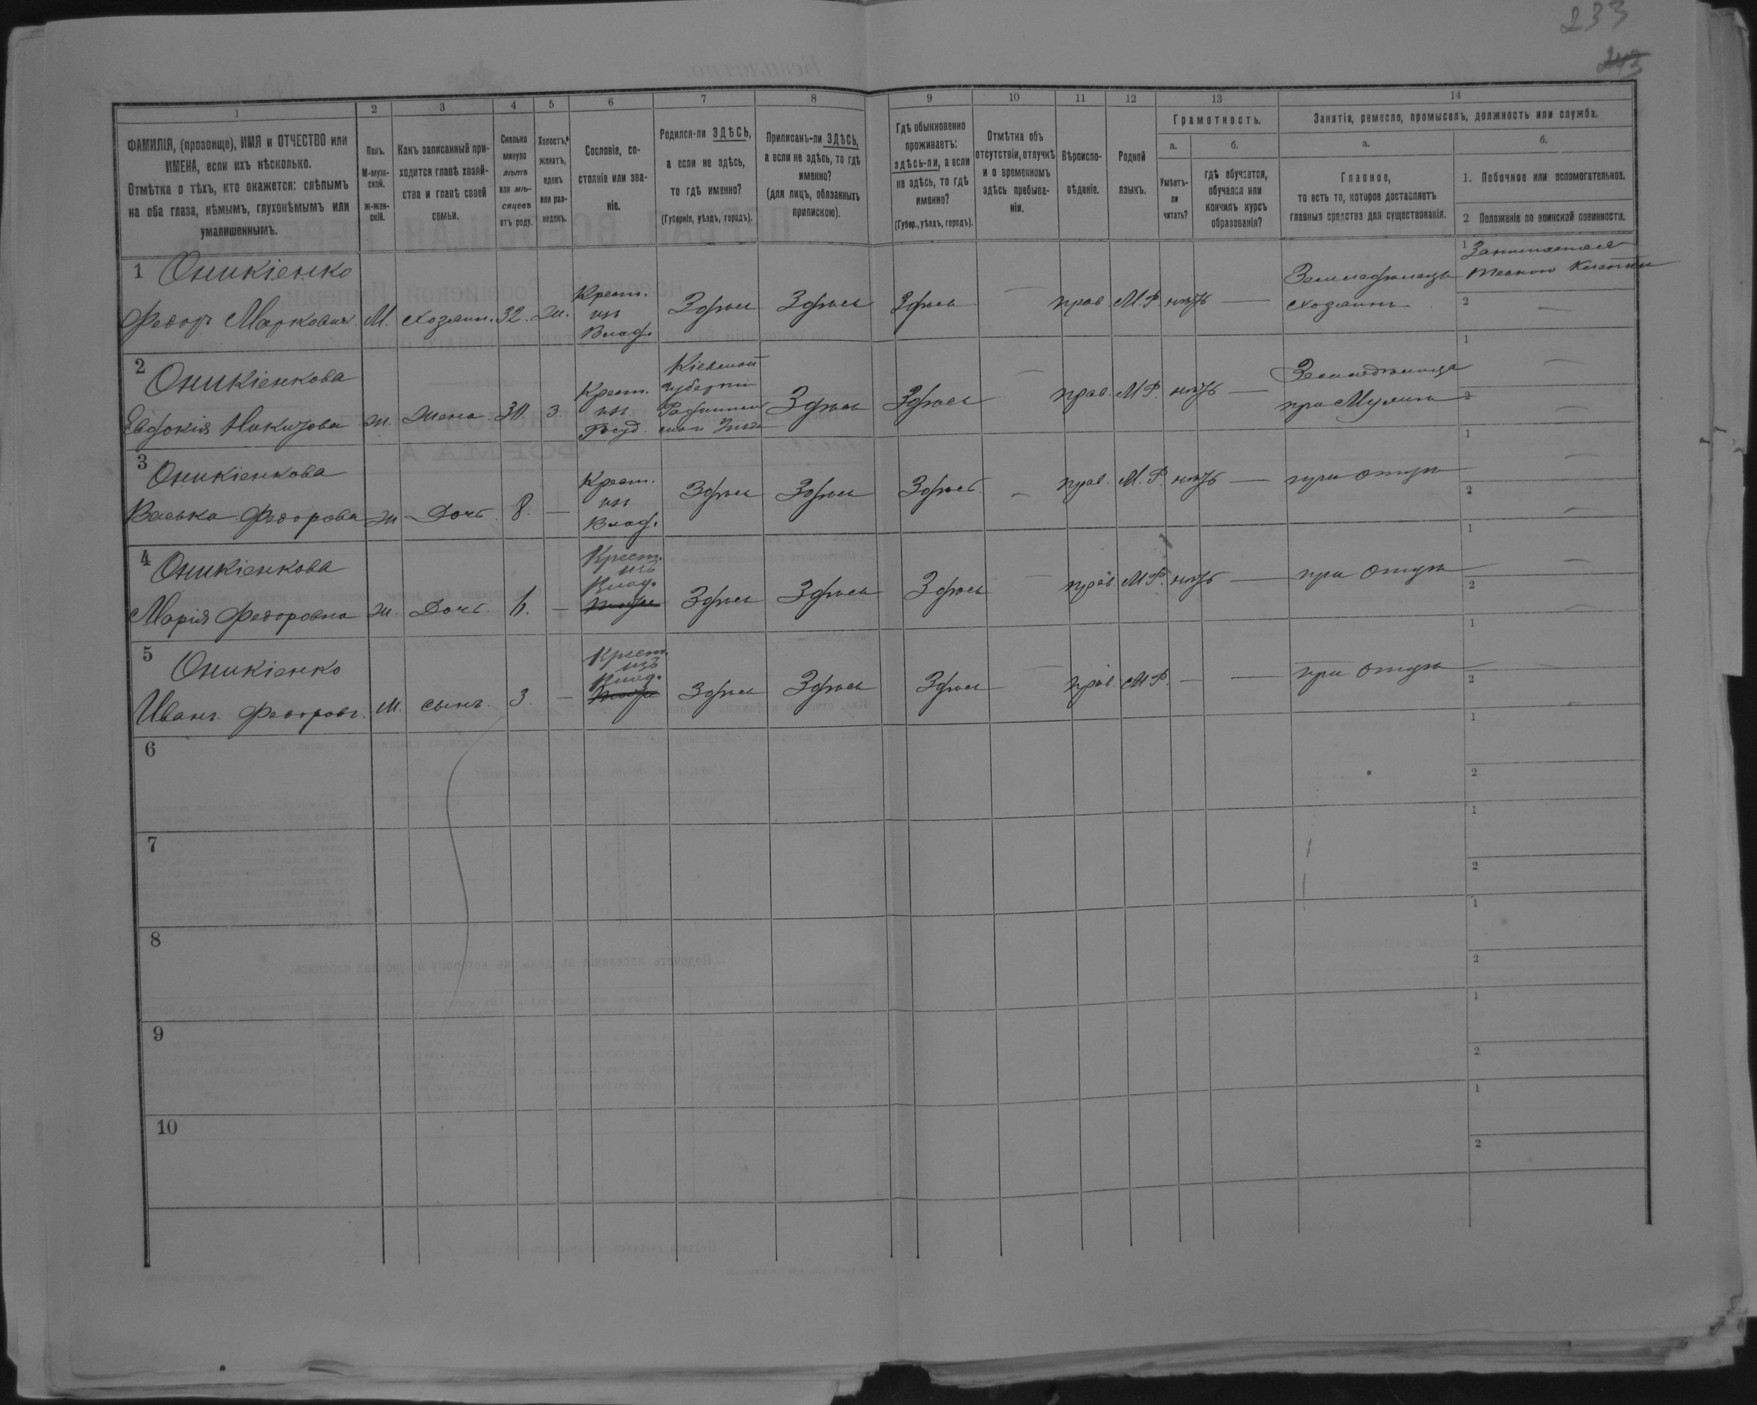 233
243
1
2
3
4
5
6
7
8
9
10
11
12
13
14
ФАМИЛІЯ, (прозвище), ИМЯ и ОТЧЕСТВО или
ИМЕНА, если ихъ нѣсколько.
Отмѣтка о тѣхъ, кто окажется: слѣпымъ
на оба глаза, нѣмымъ, глухонѣмымъ или
умалишеннымъ.
Полъ.
М-муж-
ской.
Ж-жен-
скій.
Какъ записанный при-
ходится главѣ хозяй-
ства и главѣ своей
семьи.
Сколько
минуло
лѣтъ
или мѣ-
сяцевъ
отъ роду.
Холостъ,
женатъ,
вдовъ
или раз-
веденъ.
Сословіе, со-
стояніе или зва-
ніе.
Родился-ли ЗДѢСЬ,
а если не здѣсь,
то гдѣ именно?
(Губернія, уѣздъ, городъ).
Приписанъ-ли ЗДѢСЬ,
а если не здѣсь, то гдѣ
именно?
(для лицъ, обязанныхъ
припискою).
Гдѣ обыкновенно
проживаетъ:
здѣсь-ли, а если
не здѣсь, то гдѣ
именно?
(Губер., уѣздъ, городъ).
Отмѣтка объ
отсутствіи, отлучкѣ
и о временномъ
здѣсь пребыва-
ніи.
Вѣроиспо-
вѣданіе.
Родной
языкъ.
Грамотность.
а.
Умѣетъ-
ли
читать?
б.
гдѣ обучается,
обучался или
кончилъ курсъ
образованія?
Занятія, ремесло, промыселъ, должность или служба.
а.
Главное,
то есть то, которое доставляетъ
главныя средства для существованія.
б.
1. Побочное или вспомогательное.
2 Положеніе по воинской повинности.
1 Оникіенко
Федоръ Марковичъ М. хозяин. 32. ж. Крест. изъ Влад. Здѣсь Здѣсь Здѣсь — прав. М.Р. нѣтъ — Земледѣлецъ хозяинъ 1 Занимается
2 —
2 Оникіенкова
Евдокія ж. жена 30 з Крест. изъ Госуд. Кіевской губерніи Здѣсь Здѣсь — прав. М.Р. нѣтъ — при Мужѣ 1 —
2 —
3 Оникіенкова
Васька Федорова ж Дочь 8. — Крест. изъ Влад. Здѣсь Здѣсь Здѣсь — прав. М.Р. нѣтъ — при отцѣ 1 —
2 —
4 Оникіенкова
Марія Федоровна ж. Дочь 6. — Крест. изъ Влад. Здѣсь Здѣсь Здѣсь — прав. М.Р. нѣтъ — при отцѣ 1 —
2 —
5 Оникіенко
Иванъ Федоровъ. М. сынъ. 3 — Крест. изъ Влад. Здѣсь Здѣсь Здѣсь — прав. М.Р. — — при отцѣ 1 —
2 —
6 1
2
7 1
2
8 1
2
9 1
2
10 1
2